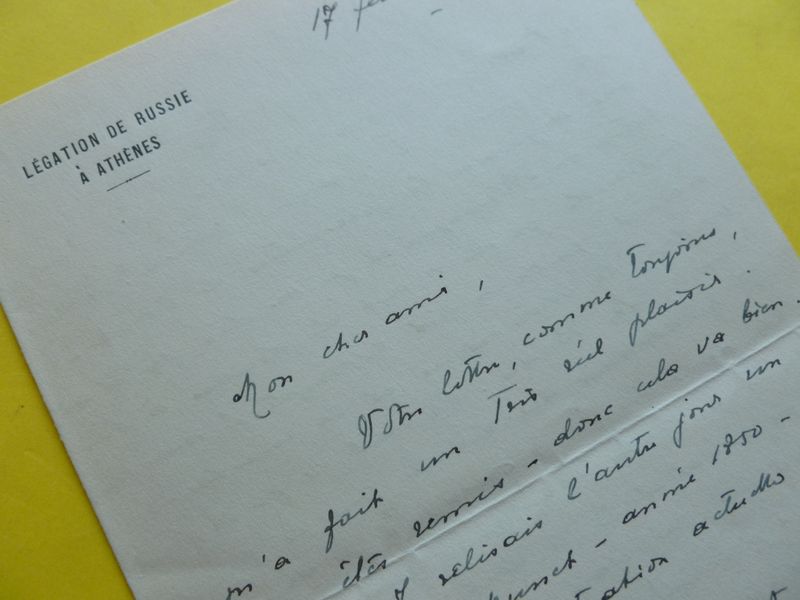 17 fe
LÉGATION DE RUSSIE
À ATHÈNES
Mon cher ami,
Votre lettre, comme toujours,
m'a fait un très réel plaisir.
êtes remis – donc cela va bien.
relisais l'autre jour un
année 1850 –
actuelle